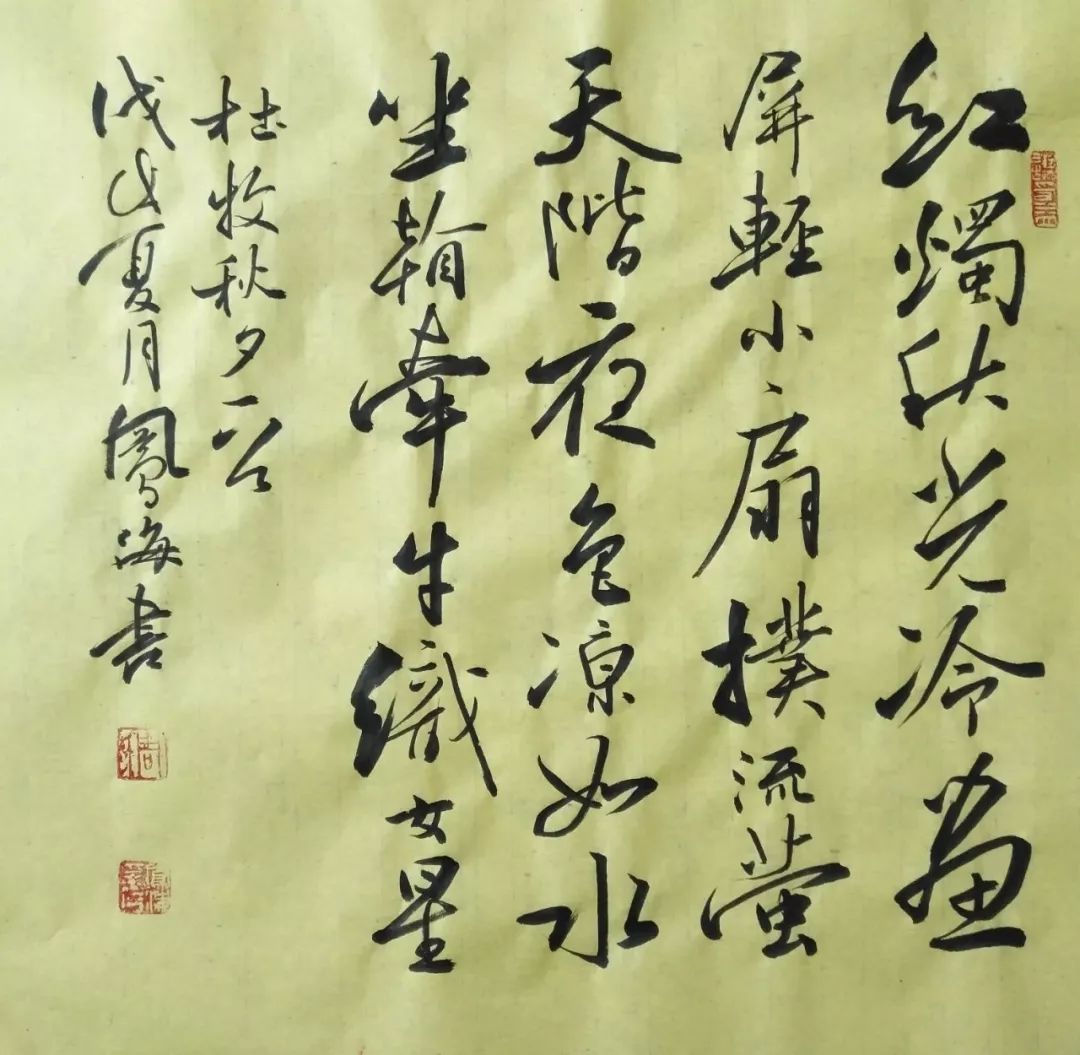 紅燭秋光冷畫
屏輕小扇撲流螢
天階夜色凉如水
坐看牽牛織女星
杜牧秋夕一首
戊戌夏月鳳海書